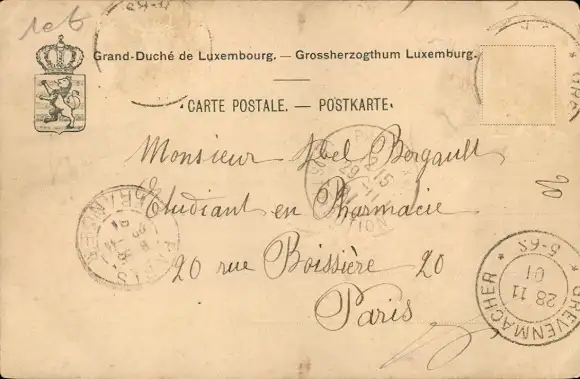 Grand-Duché de Luxembourg. — Grossherzogthum Luxemburg.
CARTE POSTALE. — POSTKARTE.
Monsieur Abel Bergault
Etudiant en Pharmacie
20 rue Boissière 20
Paris
GREVENMACHER
28 11
01
5-6S